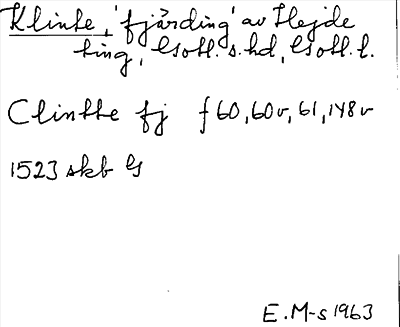 Klinte, 'fjärding' av Hejde
ting, Gotl. s. hd, Gotl. l.
Clintte fj f 60, 60v, 61, 148v
1523 skb G
E. M-s 1963